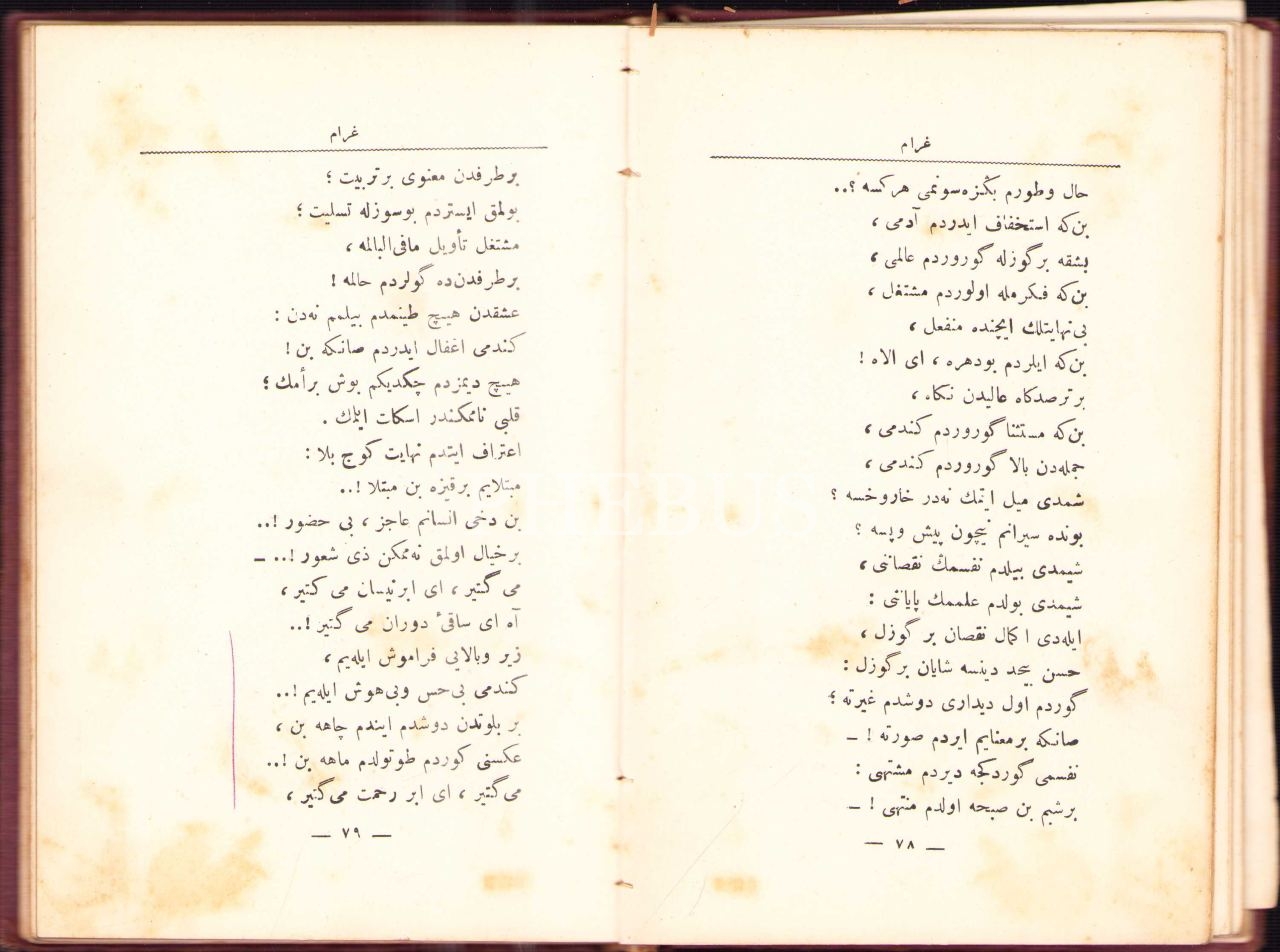 غرام
حال وطورم بكزه‌سونمى هركسه ؟..
بن‌كه استخفاف ايدردم آدمى ،
بشقه برگوزله گوروردم عالمى ،
بن‌كه فكرمله اولوردم مشتغل ،
بى‌نهايتلك ايچنده منفعل ،
بن‌كه ايلردم بودهره ، اى الاه !
بر ترصدكاه عاليدن نكاه ،
بن‌كه مستثنا گوروردم كندمى ،
جمله‌دن بالا گوروردم كندمى ،
شمدى ميل ايتمك نه‌در خاروخسه ؟
بونده سيرانم نيچون پيش وپسه ؟
شيمدى بيلدم نفسمك نقصاننى ،
شيمدى بولدم علممك پاياننى :
ايله‌دى اكمال نقصان بر گوزل ،
حسن بيحد دينسه شايان برگوزل :
گوردم اول ديدارى دوشدم غيرته ؛
صانكه برمعنايم ايردم صورته ! —
نفسمى گوردكجه ديردم مشتهى :
برشبم بن صبحه اولدم منتهى ! —
— ٧٨ —
غرام
برطرفدن معنوى برتربيت ؛
بولمق ايستردم بوسوزله تسليت ؛
مشتغل تأويل مافى‌البالمله ،
برطرفدن‌ده گولردم حالمه !
عشقدن هيچ طينمدم بيلمم نه‌دن :
كندمى اغفال ايدردم صانكه بن !
هيچ ديمزدم چكديكم بوش برأمك ؛
قلبى ناممكندر اسكات ايتمك .
اعتراف ايتدم نهايت كوج بلا :
مبتلايم برقيزه بن مبتلا !..
بن دخى انسانم عاجز ، بى حضور !..
برخيال اولمق نه‌ممكن ذى شعور !.. —
مى گتير ، اى ابر نيسان مى گتير ،
آه اى ساقئ دوران مى گتير !..
زير وبالايى فراموش ايله‌يم ،
كندمى بى‌حس وبى‌هوش ايله‌يم !..
بر بلوتدن دوشدم ايندم چاهه بن ،
عكسنى كوردم طوتولدم ماهه بن !..
مى‌گتير ، اى ابر رحمت مى‌گتير ،
— ٧٩ —